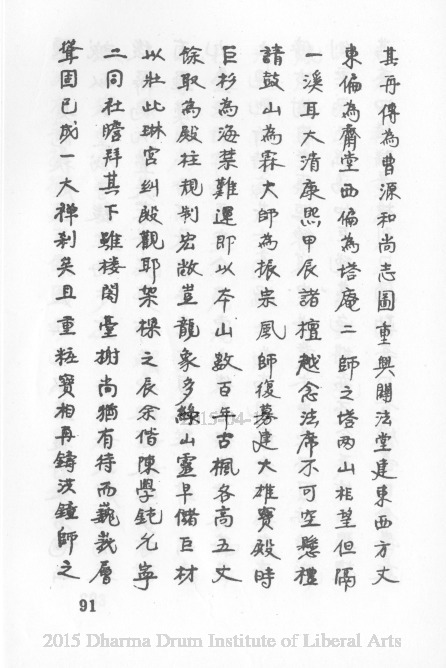 其再傳為曹源和尚志圖重興闢法堂建東西方丈
東偏為齋堂西偏為塔庵二師之塔兩山相望但隔
一溪耳大清康熙甲辰諸檀越念法席不可空懸禮
請鼓山為霖大師為振宗風師復募建大雄寶殿時
巨杉為海禁難運即以本山數百年古楓各高五丈
餘取為殿柱規制宏敞豈龍象多緣山靈早儲巨材
以壯此琳宮紺殿觀耶架樑之辰余偕陳學鈍允寧
二同社瞻拜其下雖樓閣臺榭尚猶有待而巍峩層
鞏固已成一大禪刹矣且重粧寶相再鑄洪鐘師之
91
2015 Dharma Drum Institute of Liberal Arts